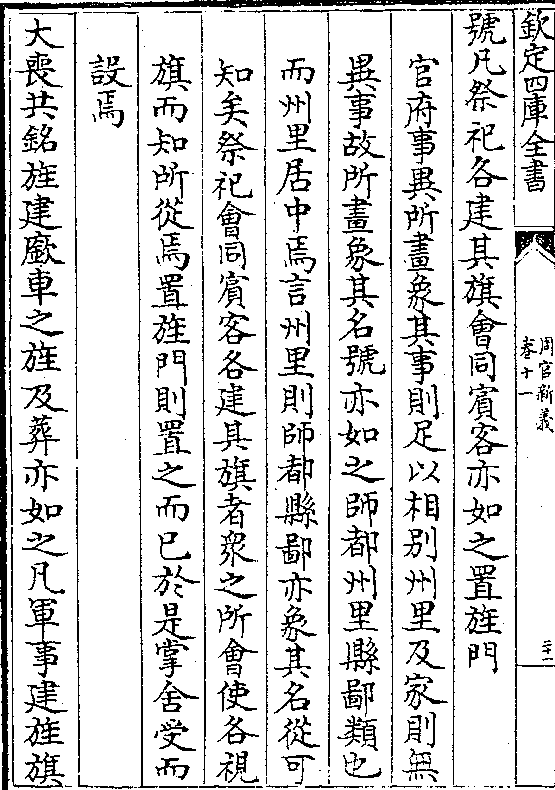 欽定四庫全書
周官新義
卷十一
二十一
號凡祭祀各建其旗會同賓客亦如之置旌門
官府事異所畫象其事則足以相别州里及家則無
異事故所畫象其名號亦如之師都州里縣鄙類也
而州里居中焉言州里則師都縣鄙亦象其名從可
知矣祭祀會同賓客各建其旗者衆之所會使各視
旗而知所從焉置旌門則置之而已於是掌舍受而
設焉
大喪共銘旌建廞車之旌及葬亦如之凡軍事建旌旗